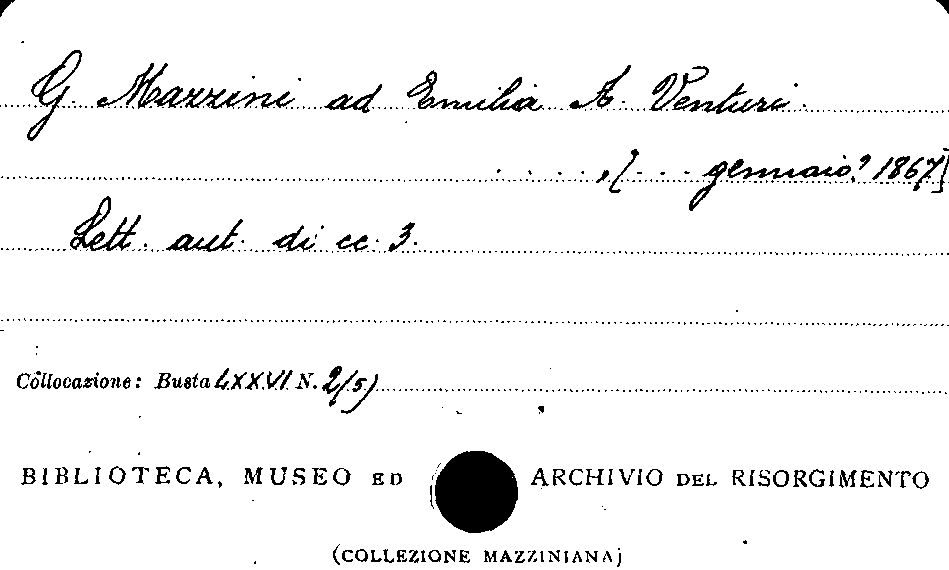 G. Mazzini ad Emilia A. Venturi.
. . . . , [. . . gennaio? 1867]
Lett. aut. di cc. 3.
Collocazione: Busta LXXVI N. 2/5)
BIBLIOTECA, MUSEO ED ARCHIVIO DEL RISORGIMENTO
(COLLEZIONE MAZZINIANA)